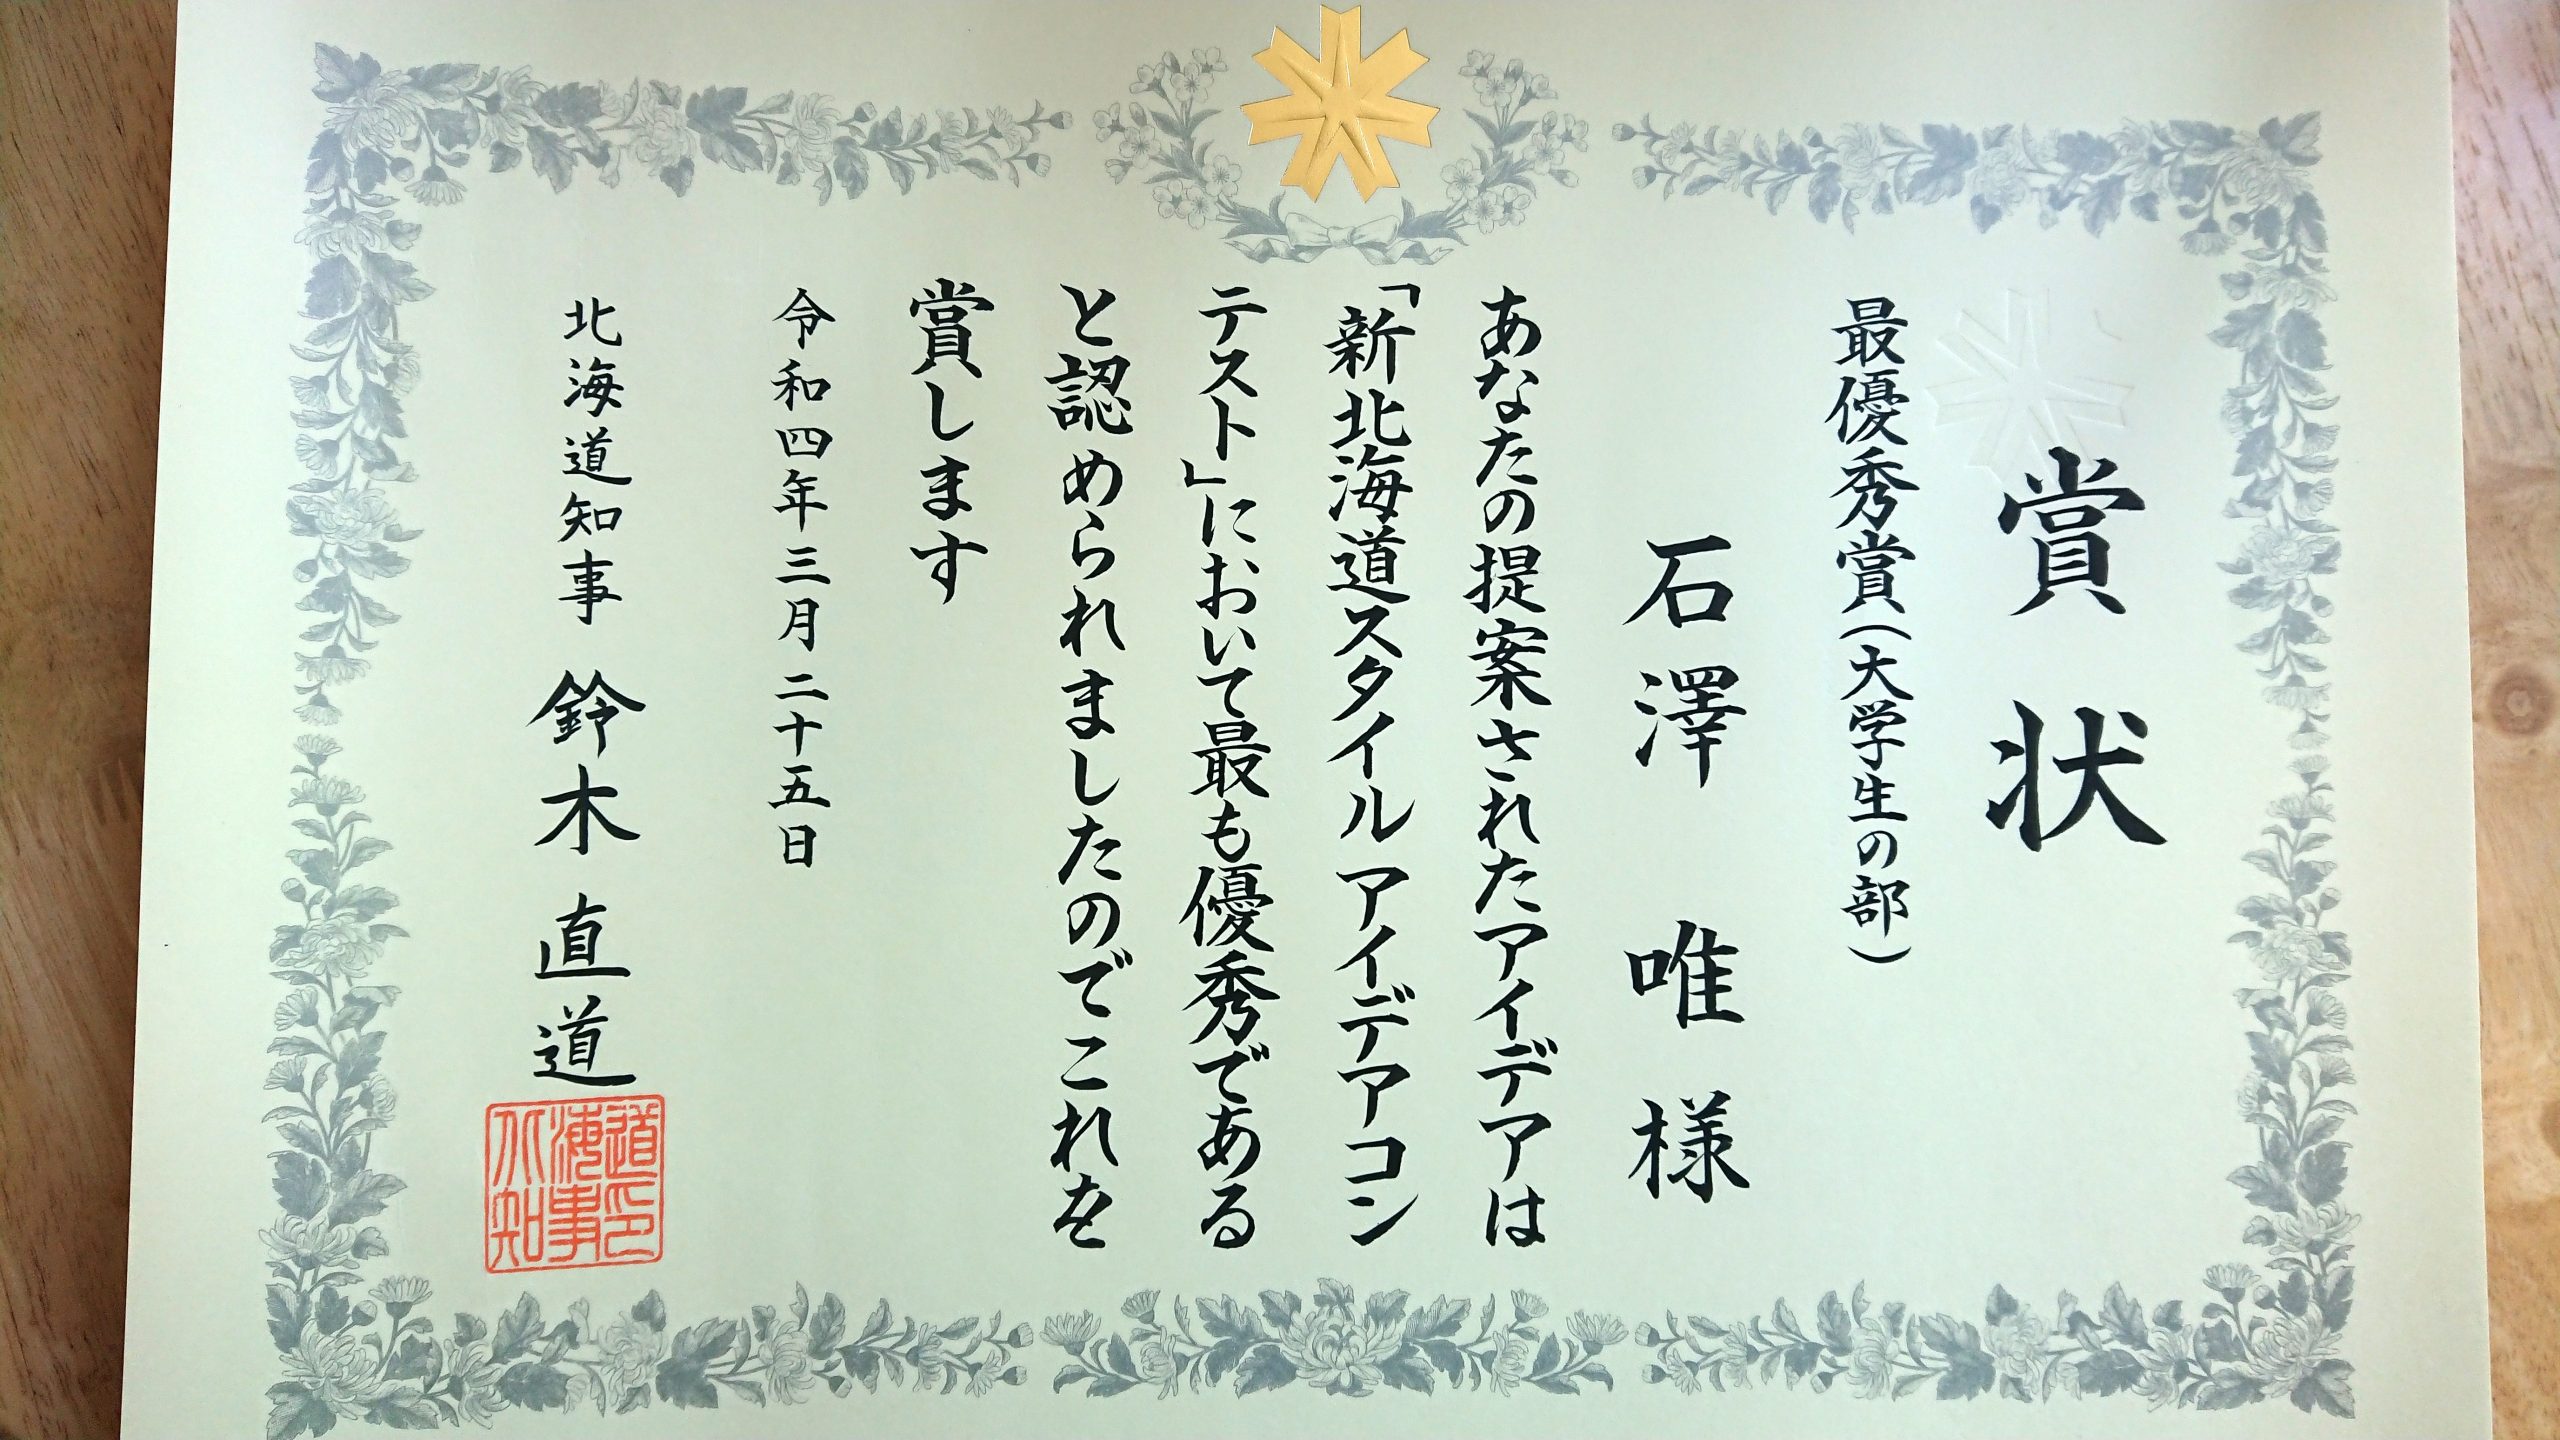 賞状
最優秀賞(大学生の部)
石澤 唯 様
あなたの提案されたアイデアは
「新北海道スタイルアイデアコン
テスト」において最も優秀である
と認められましたのでこれを
賞します
令和四年三月二十五日
北海道知事 鈴木直道
北海道知事印